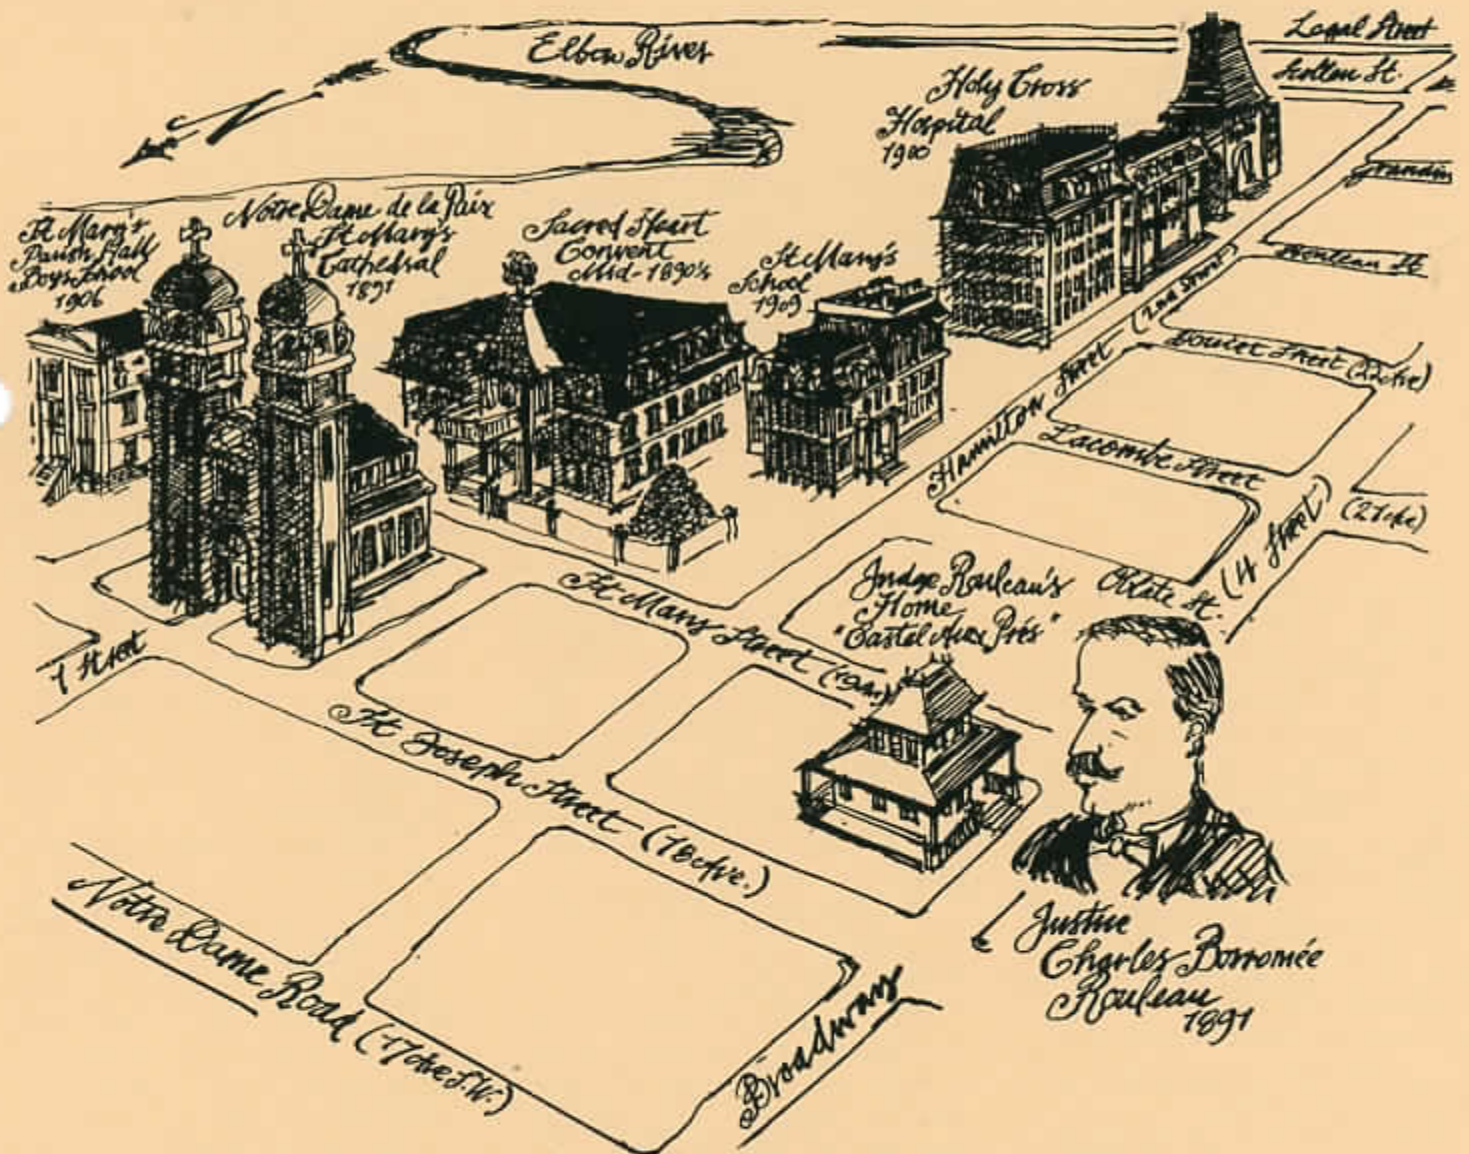 Elbow River
Legal Street
Scollen St.
Holy Cross
Hospital
1900
Grandin
St Mary's
Parish Hall
Boys School
1906
Notre Dame de la Paix
St Mary's
Cathedral
1891
Sacred Heart
Convent
Mid-1890's
St Mary's
School
1909
Rouleau St
Hamilton Street (2nd Street)
Doucet Street (22 Ave)
Lacombe Street
(21 Ave)
Oblate St.
(4 Street)
Judge Rouleau's
Home
"Castel Aux Prés"
1 Street
St Mary Street (19 Av.)
St Joseph Street (18 Ave.)
Notre Dame Road (17 Ave S.W.)
Broadway
Justice
Charles Borromée
Rouleau
1891